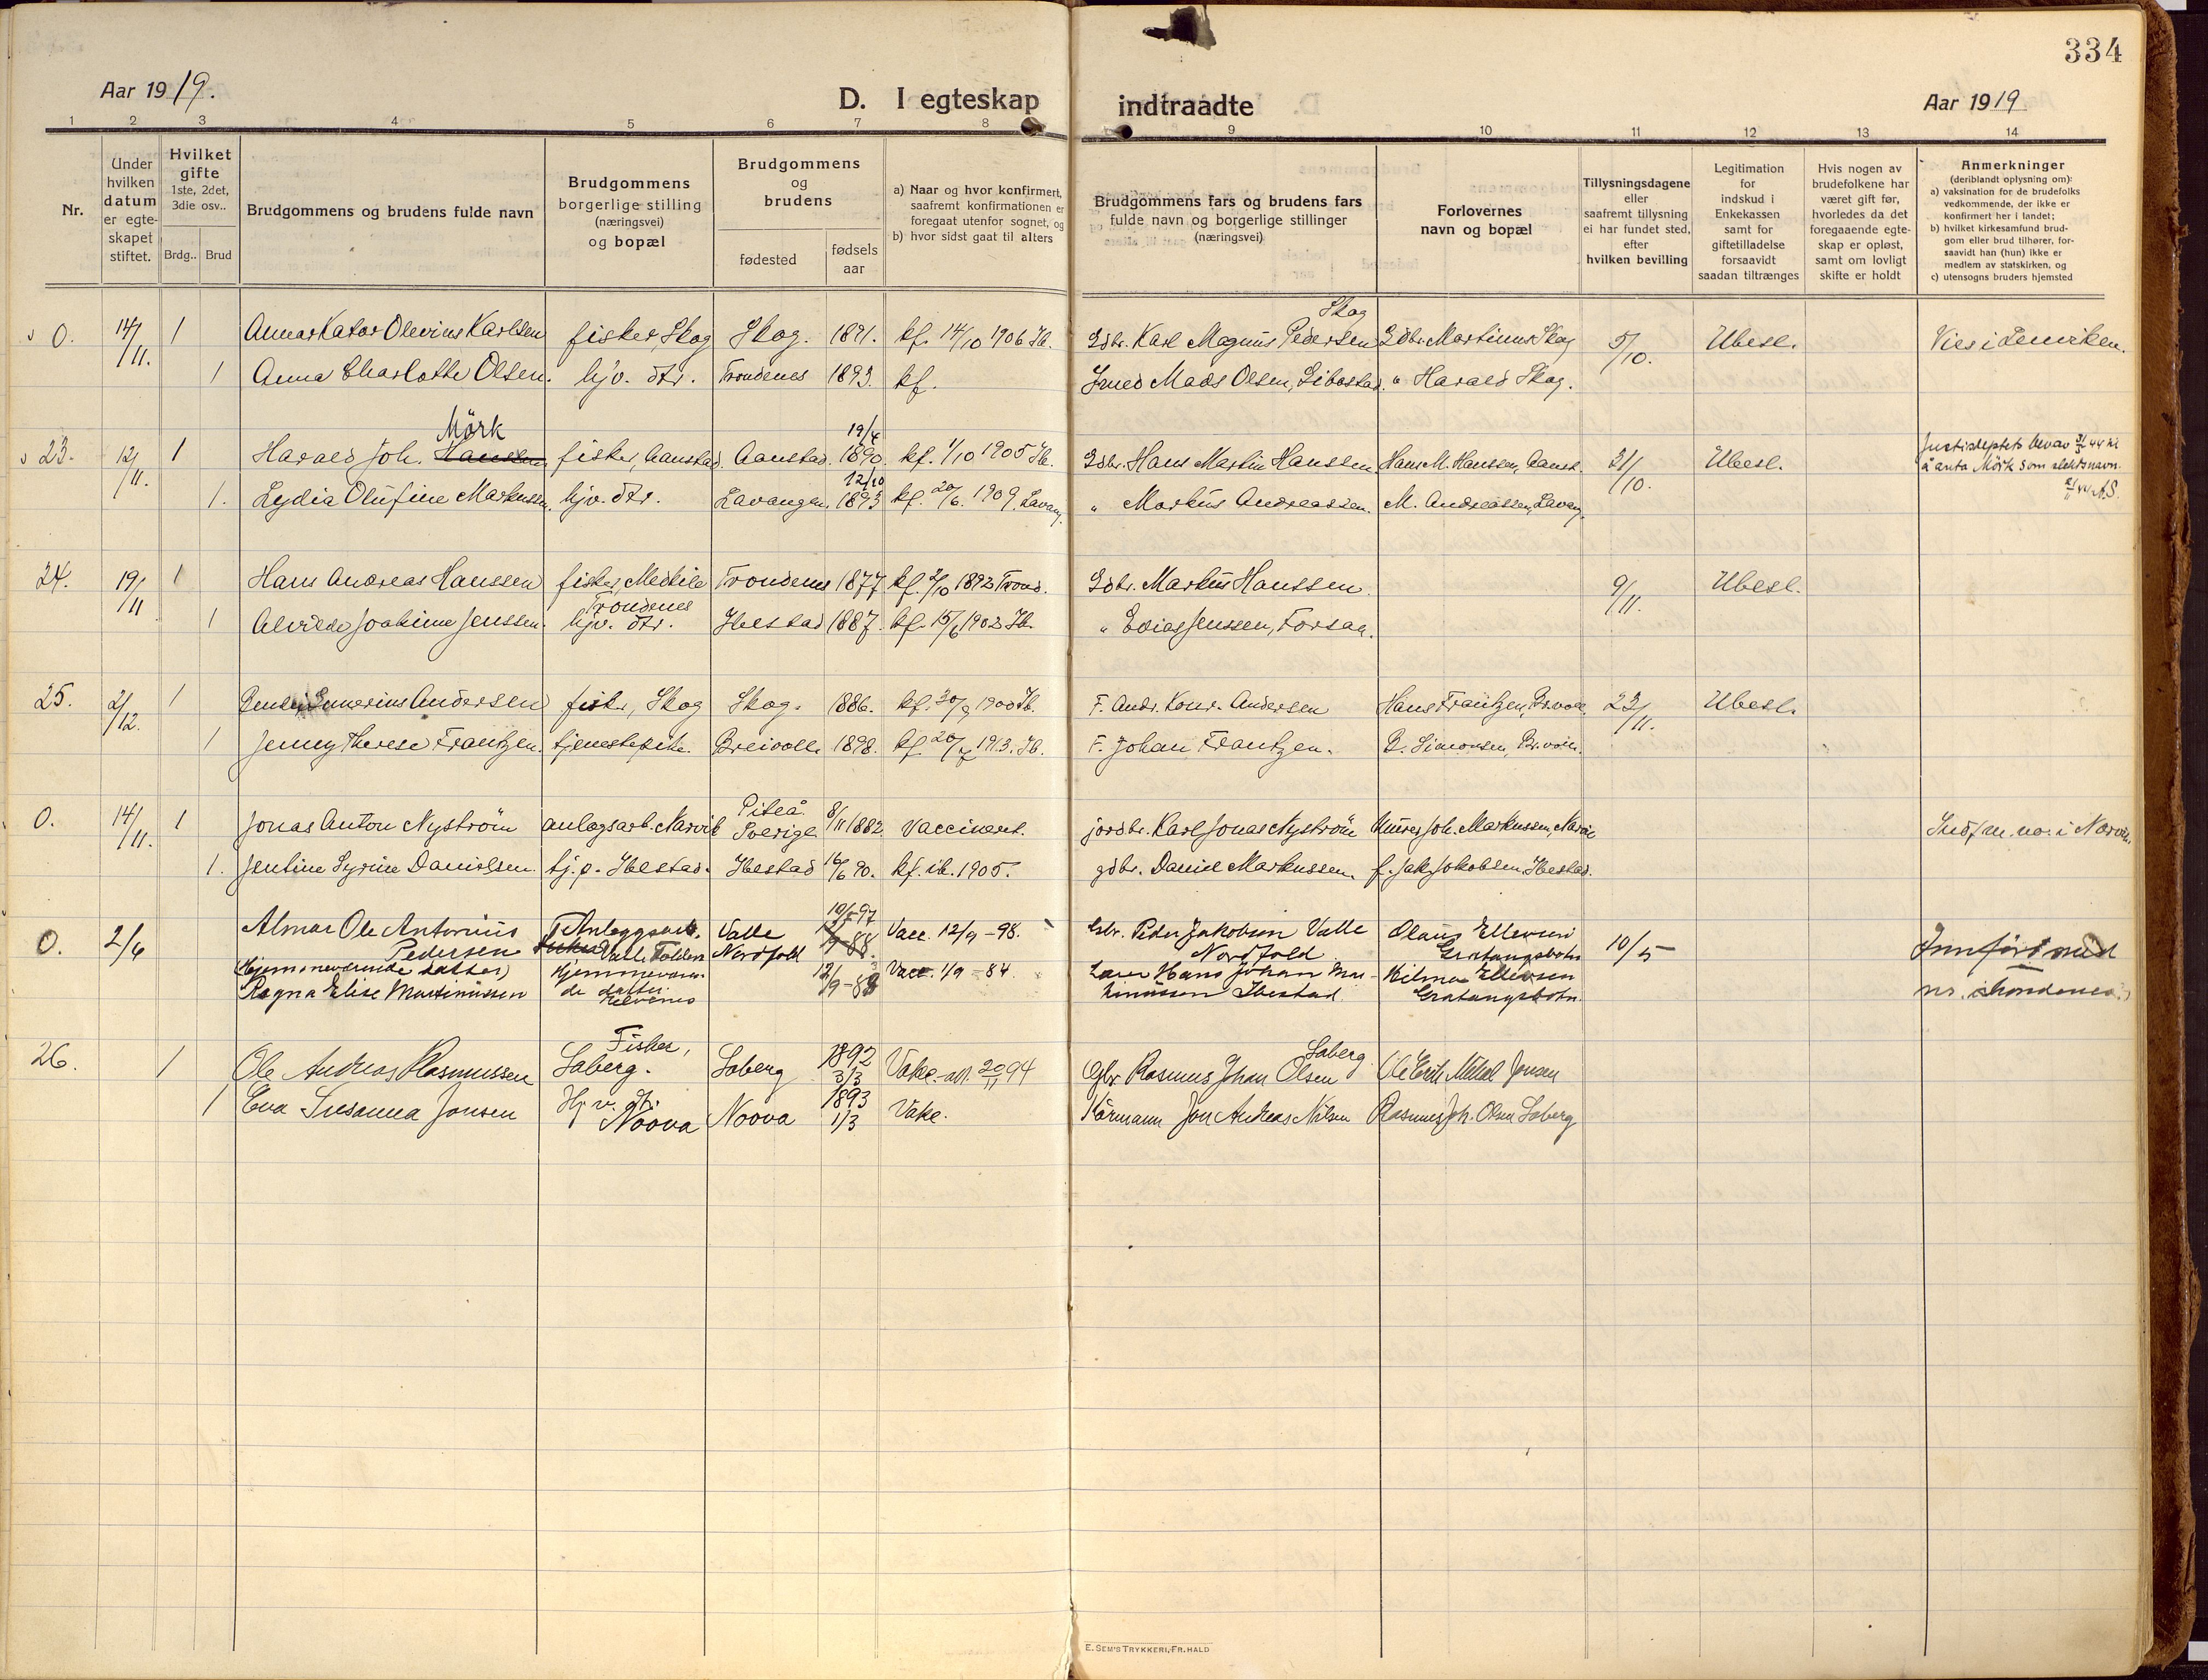 334
Aar 1919.
D. I egteskap indtraadte
Aar 1919
1 2 3 4 5 6 7 8 9 10 11 12 13 14
Nr.
Under hvilken datum er egteskapet stiftet.
Hvilket gifte 1ste, 2det, 3die osv..
Brdg.. Brud
Brudgommens og brudens fulde navn
Brudgommens borgerlige stilling (næringsvei) og bopæl
Brudgommens og brudens
fødested
fødsels aar
a) Naar og hvor konfirmert, saafremt konfirmationen er foregaat utenfor sognet, og
b) hvor sidst gaat til alters
Brudgommens fars og brudens fars fulde navn og borgerlige stillinger (næringsvei)
Forlovernes navn og bopæl
Tillysningsdagene eller saafremt tillysning ei har fundet sted, efter hvilken bevilling
Legitimation for indskud i Enkekassen samt for giftetilladelse forsaavidt saadan tiltrænges
Hvis nogen av brudefolkene har været gift før, hvorledes da det foregaaende egteskap er opløst, samt om lovligt skifte er holdt
Anmerkninger
(deriblandt oplysning om):
a) vaksination for de brudefolks vedkommende, der ikke er konfirmert her i landet;
b) hvilket kirkesamfund brudgom eller brud tilhører, forsaavidt han (hun) ikke er medlem av statskirken, og
c) utensogns bruders hjemsted
0. 14/11. 1 Olevius Karlsen fisker, Skog Skog. 1891. kf. 14/10 1906 Ib. Gdbr. Karl Magnus Pedersen Skog Gdbr. Martinus Skog 5/10. Ubesl. Vies i
1 Anna Charlotte Olsen. hjv. dtr. Trondenes 1893. kf. Mads Olsen, Gibostad. " Harald Skog.
23. 12/11. 1 Harald Joh. Hanssen Mörk fisker, Aanstad. Aanstad. 19/4 1890. kf. 1/10 1905 Ib. Gdbr. Hans Martin Hanssen Hans M. Hanssen, Aanst. 31/10. Ubesl. å anta Mörk som slektsnavn.
1. Lydia Olufine Markussen. hjv. dtr. Lavangen. 12/10 1893 kf. 20/6. 1909. Lavang. " Markus Andreassen. M. Andreassen, Lavang.
24. 19/11 1 Hans Andreas Hanssen fisker, Medkile Trondenes Trondenes 1877 kf. 2/10 1892 Trond. Gdbr. Markus Hanssen. 9/11. Ubesl.
1 Alvilde Joakime Jenssen. hjv. dtr. Ibestad 1887. kf. 15/6 1902 Ib. " Edias Jenssen, Forsaa.
25. 2/12. 1 Andersen fisker, Skog Skog. 1886. kf. 30/9 1900 Ib. F. Andr. Konr. Andersen Hans Frantzen, Br.voll. 23/11. Ubesl.
1 Jenny Therese Frantzen. tjenestepike. Breivoll. 1898. kf. 20/7 1913. Ib. F. Johan Frantzen. B. Simonsen, Br.voll.
0. 14/11. 1 Jonas Anton Nyström anlægsarb. Narvik Piteå Sverige 8/11 1882 Vaccinert. jordbr. Karl Jonas Nyström Joh. Markussen, Narvik Indf. m. nr. i Narvik.
1. Jentine Syrine Danielsen. tj.p. Ibestad. Ibestad 16/6 90. kf. ib. 1905. gdbr. Daniel Markussen. f. Jak. Jakobsen, Ibestad.
0. 2/6 Almar Ole Antonius Pedersen Anleggsarb. Valle, Folden Valle Nordfold 10/5-97 Vacc. 12/9 -98. Gbr. Peder Jakobsen Valle Nordfold Olaus Ellevsen Gratangsbotn 10/5 Innført med
(Hjemmeværende datter) Ragna Elise Martinussen Hjemmeværende datter Elvenes 12/9-84 Vacc. 1/9 -84. Hans Johan Martinussen Ibestad Hilma Ellevsen Gratangsbotn. nr. i Trondenes.
26. 1 Ole Andreas Rasmussen Fisker, Soberg. Soberg 1892 3/3 Vakc. att. 20/11 94 Gbr. Rasmus Johan Olsen Soberg Ole Erik Mikal Jensen
1 Eva Susanna Jonsen Hj. v. dtr. Noova Noova 1893 1/3 Vakc. Kårmann Jon Andreas Nilsen Rasmus Joh. Olsen Soberg
E. SEM'S TRYKKERI, FR. HALD